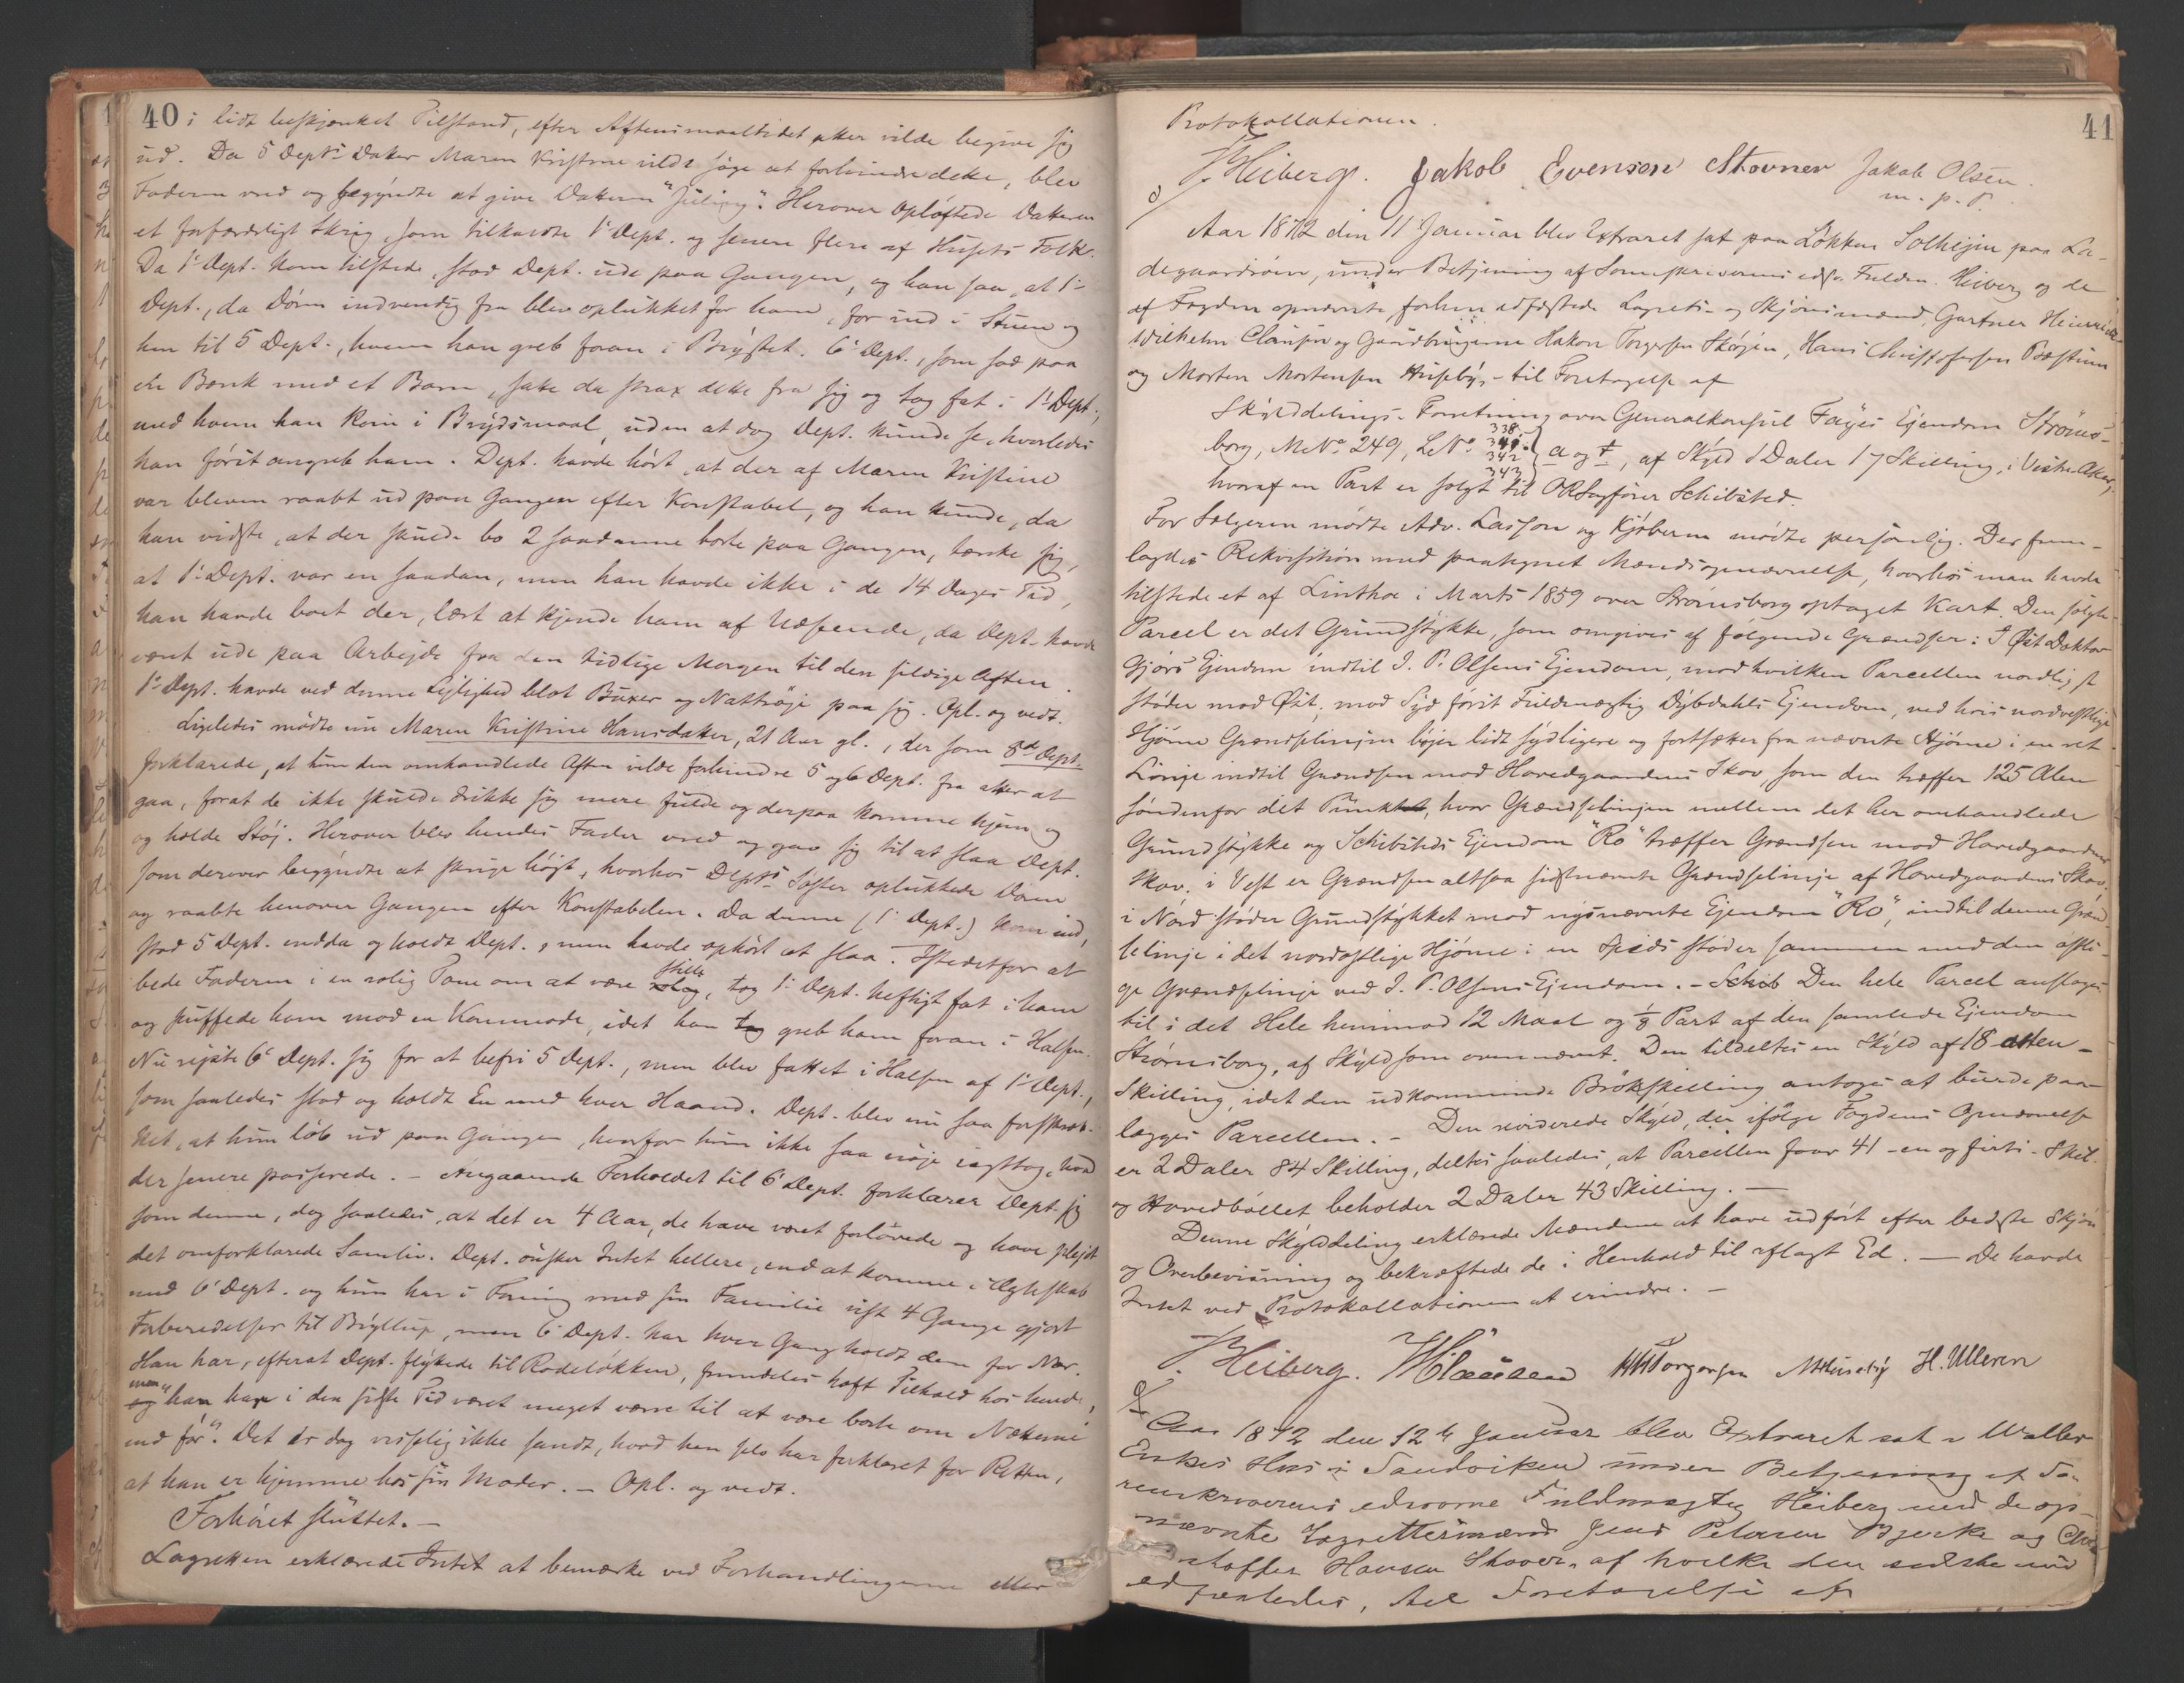 40 i lidt beskjænket Tilstand, efter Aftensmaaltidet atter vilde begive sig
ud. Da 5 Dept.s Datter Maren Kristine vilde søge at forhindre dette, blev
Faderen vred og begyndte at give Datteren "Juling". Herover opløftede Datteren
et forfærdeligt Skrig, som tilkaldte 1ste Dept. og senere flere af Husets Folk.
Da 1ste Dept. kom tilstede, stod Dept. ude paa Gangen, og han saa, at 1ste
Dept., da Døren indvendig fra blev oplukket for ham, for ind i Stuen og
hen til 5 Dept., hvem han greb foran i Brystet. 6te Dept., som sad paa
en Bænk med et Barn, satte da strax dette fra sig og tog fat i 1ste Dept.,
med hvem han kom i Brydsmaal, uden at dog Dept. kunde se, hvorledes
han først angreb ham. Dept. havde hørt, at der af Maren Kristine
var bleven raabt ud paa Gangen efter Konstabel, og han kunde, da
han vidste, at der skulde bo 2 saadanne borte paa Gangen, tænke sig,
at 1ste Dept. var en saadan, men han havde ikke i de 14 Dages Tid,
han havde boet der, lært at kjende ham af Udseende, da Dept. havde
været ude paa Arbejde fra den tidlige Morgen til den sildige Aften.
1ste Dept. havde ved denne Lejlighed blot Buxer og Nattrøje paa sig. Opl. og vedt.
Ligeledes mødte nu Maren Kristine Hansdatter, 21 Aar gl., der som 8de Dept.
forklarede, at hun den omhandlede Aften vilde forhindre 5 og 6 Dept. fra atter at
gaa, forat de ikke skulde drikke sig mere fulde og derpaa komme hjem og
og holde Støj. Herover blev hendes Fader vred og gav sig til at slaa Dept.
som derover begyndte at skrige højt, hvorhos Dept.s Søster oplukkede Døren
og raabte henover Gangen efter Konstabelen. Da denne (1ste Dept.) kom ind,
stod 5 Dept. endda og holdt Dept., men havde ophørt at slaa. Istedetfor at
bede Faderen i en rolig Tone om at være rolig stille, tog 1ste Dept. heftigt fat i ham
og skuffede ham mod en Kommode, idet han tog greb ham foran i Halsen.
Nu rejste 6te Dept. sig for at befri 5 Dept., men blev fattet i Halsen af 1ste Dept.,
som saaledes stod og holdt En med hver Haand. Dept. blev nu saa forskræk-
ket, at hun løb ud paa Gangen, hvorfor hun ikke saa nøje iagttog, hvad
der senere passerede. - Angaaende Forholdet til 6te Dept. forklarer Dept. sig
som denne, dog saaledes, at det er 4 Aar, de have været forlovede og have plejet
det omforklarede Samliv. Dept. ønsker Intet hellere, end at komme i Ægteskab
med 6te Dept. og hun har i Forening med sin Familie vist 4 Gange gjort
Forberedelser til Bryllup, men 6te Dept. har hver Gang holdt dem for Nar.
Han har, efterat Dept. flyttede til Rodeløkken, fremdeles havt Tilhold hos hende,
og men "han har i den sidste Tid været meget værre til at være borte om Nætterne
end før". Det er dog visselig ikke sandt, hvad han selv har forklaret for Retten,
at han er hjemme hos sin Moder. - Opl. og vedt.
Forhøret sluttet. -
Lagretten erklærede Intet at bemærke ved Forhandlingerne eller
41
Protokollationen.
J. Heiberg. Jakob Evensen Stovner Jakob Olsen.
m. p. P.
Aar 1872 den 11 Januar blev Extraret sat paa Løkken Solhejm paa La-
degaardsøen, under Betjening af Sorenskriverens eds. Fuldm. Heiberg og de
af Fogden opnævnte, forhen edfæstede Lagrets- og Skjønsmænd, Gartner Heinrich
Wilhelm Clausen og Gaardbrugerne Hakon Torgersen Skøjen, Hans Christofersen Bæstum
og Morten Mortensen Huseby, - til Foretagelse af
Skylddelings-Forretning over Generalkonsul Fayes Ejendom Strøms-
borg, M.No. 249, L.No. 338. 341. 342 343 } a og f, af Skyld 1 Daler 17 Skilling, i Vestre Aker,
hvoraf en Part er solgt til ORSagfører Schibsted.
For Sælgeren mødte Adv. Lasson og Kjøberen mødte personlig. Der frem-
lagdes Rekvisition med paategnet Mændsopnævnelse, hvorhos man havde
tilstede et af Linthoe i Marts 1859 over Strømsborg optaget Kart. Den solgte
Parcel er det Grundstykke, som omgives af følgende Grændser: I Øst Doktor
Gjørs Ejendom indtil J. P. Olsens Ejendom, mod hvilken Parcellen nordligst
støder mod Øst; mod Syd først Fuldmægtig Dybdahls Ejendom, ved hvis nordvestlige
Hjørne Grændselinjen bøjer lidt sydligere og fortsætter fra nævnte Hjørne i en ret
Linje indtil Grændsen mod Hovedgaardens Skov, som den træffer 125 Alen
søndenfor det Punktet, hvor Grændselinjen mellem det her omhandlede
Grundstykke og Schibsteds Ejendom "Ro" træffer Grændsen mod Hovedgaardens
Skov. i Vest er Grændsen altsaa sidstnævnte Grændselinje af Hovedgaardens Skov.
i Nord støder Grundstykket mod nysnævnte Ejendom "Ro", indtil denne Grænd-
selinje i det nordøstlige Hjørne i en Spids støder sammen med den østli-
ge Grændselinje ved J. P. Olsens Ejendom. - Schib Den hele Parcel ansloges
til i det Hele henimod 12 Maal og 1/8 Part af den samlede Ejendom
Strømsborg, af Skyld som ovennævnt. Den tildeltes en Skyld af 18 atten -
Skilling, idet den udkommende Brøkskilling antoges at burde paa-
lægges Parcellen. - Den reviderede Skyld, der ifølge Fogdens Opnævnelse
er 2 Daler 84 Skilling, deltes saaledes, at Parcellen faar 41 - en og firti - Skil.
og Hovedbøllet beholder 2 Daler 43 Skilling. -
Denne Skylddeling erklærede Mændene at have udført efter bedste Skjøn
og Overbevisning og bekræftede de i Henhold til aflagt Ed. - De havde
Intet ved Protokollationen at erindre. -
J. Heiberg. HWClausen HHTorgersen MMHuseby H. Ulleren
Aar 1872 den 12te Januar blev Extraret sat i Waller
Enkes Hus i Sandviken under Betjening af So-
renskriverens edsvorne Fuldmægtig Heiberg med de op-
nævnte Lagrettesmænd Jens Petersen Bjerke og Chri-
stoffer Hansen Skover, af hvilke den sidste nu
edfæstedes, til Foretagelse af